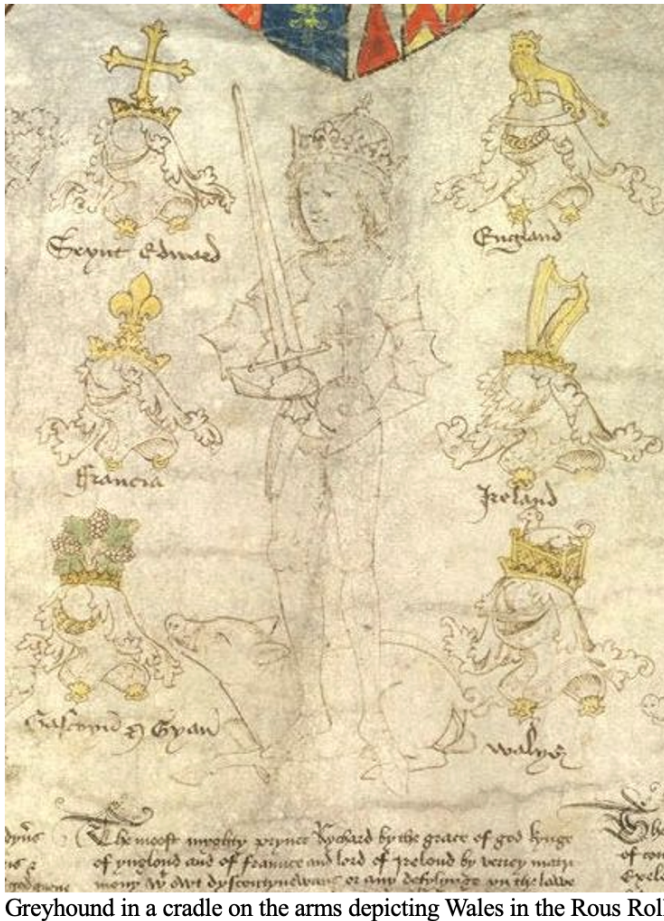 Seynt Edward
England
Francia
Ireland
Gascoyn & Gyan
walys
The moost myghty prynce Rychard by the grace of god kynge
of ynglond and of fraunce and lord of Irelond by verrey matry
mony wt owt dyscontynewans or any defylynge yn the lawe
Greyhound in a cradle on the arms depicting Wales in the Rous Rol